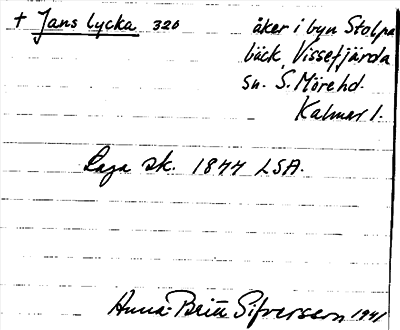 + Jans lycka 320 åker i byn Stolpa
bäck, Vissefjärda
sn. S. Möre hd.
Kalmar l.
Laga sk. 1877 LSA.
Anna-Britt Sifversson 1941